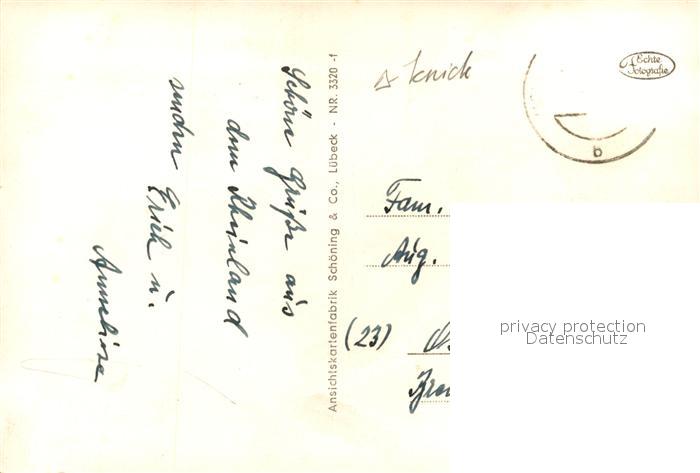 Schöne Grüße aus
dem Rheinland
senden Erich u.
Anneliese
Ansichtskartenfabrik Schöning & Co., Lübeck - NR. 3320 -f
knick
Echte
Fotografie
b
Fam.
Aug.
(23)
privacy protection
Datenschutz